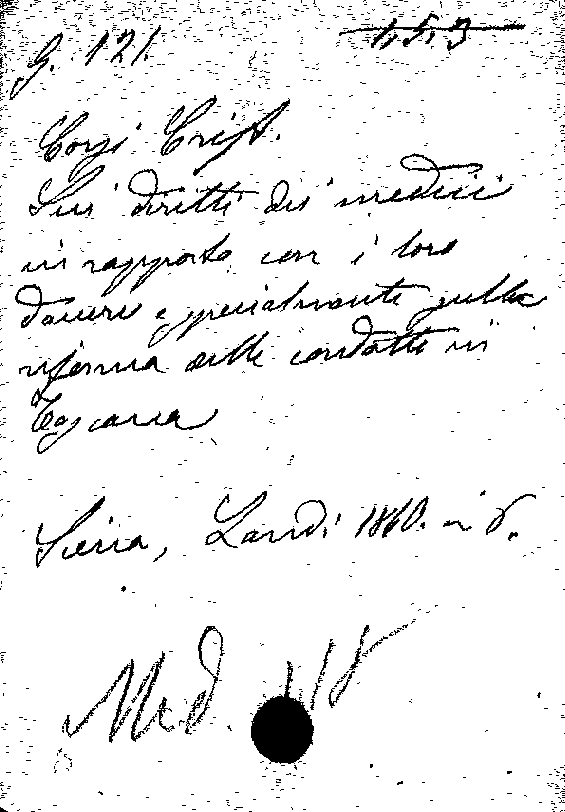 G. 121. 1.5.3
Corsi Crist.
Sui diritti dei medici
in rapporto con i loro
doveri e specialmente sulla
riforma delle condotte in
Toscana
Siena, Landi 1860. in 8.
Med.